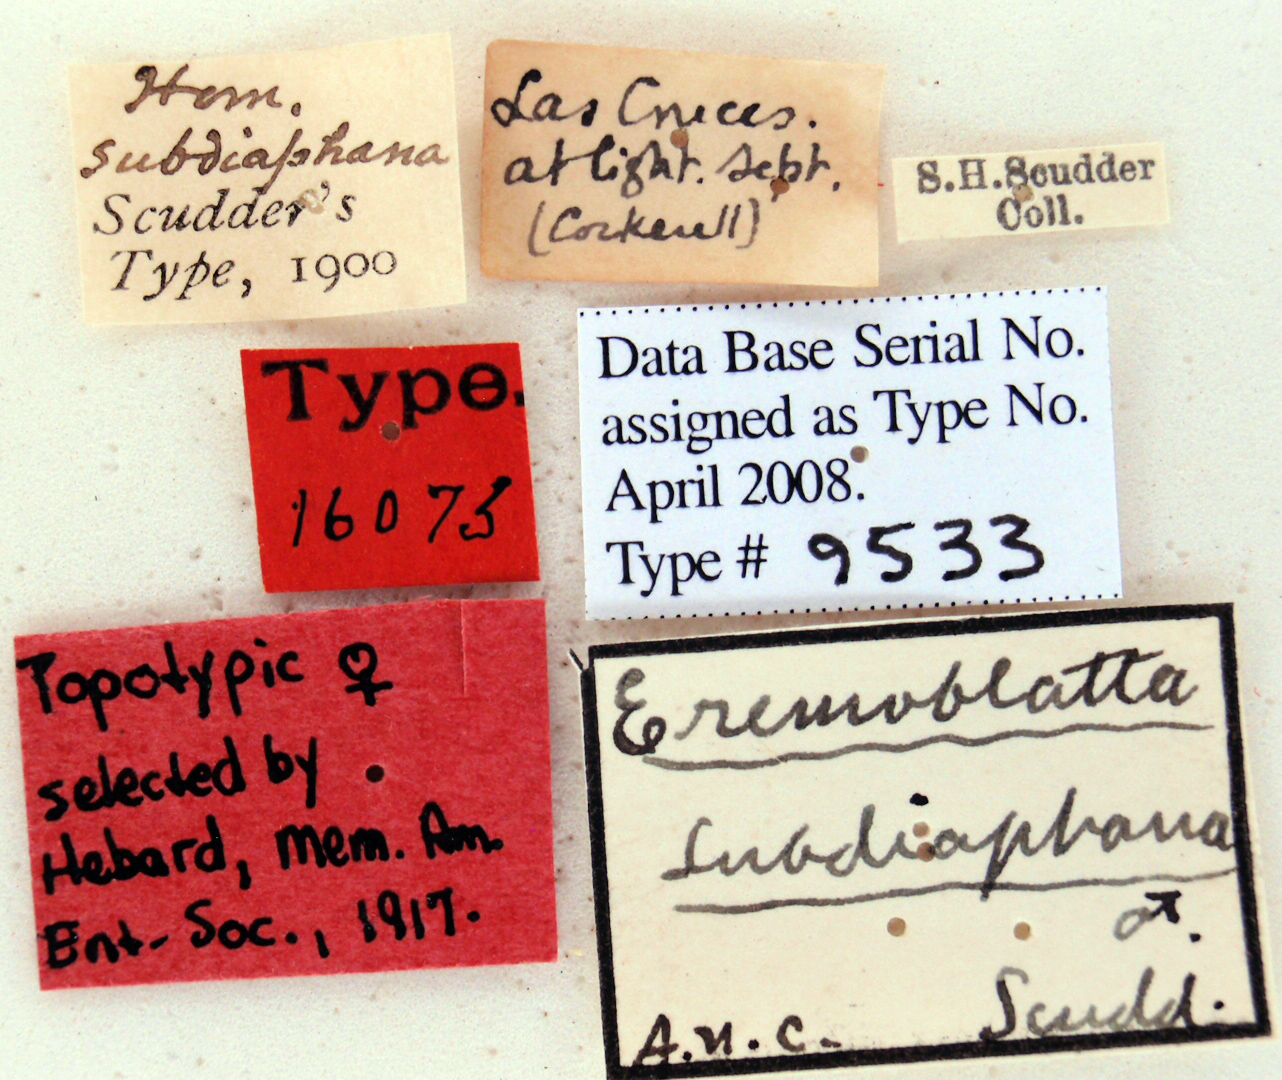 Hom.
subdiaphana
Scudder's
Type, 1900
Las Cruces.
at light. Sept.
(Cockerell)
S.H.Scudder
Coll.
Type.
16075
Data Base Serial No.
assigned as Type No.
April 2008.
Type # 9533
Topotypic ♀
selected by
Hebard, Mem. Am.
Ent. Soc., 1917.
Eremoblatta
subdiaphana
♂.
Scudd.
A.N.C.